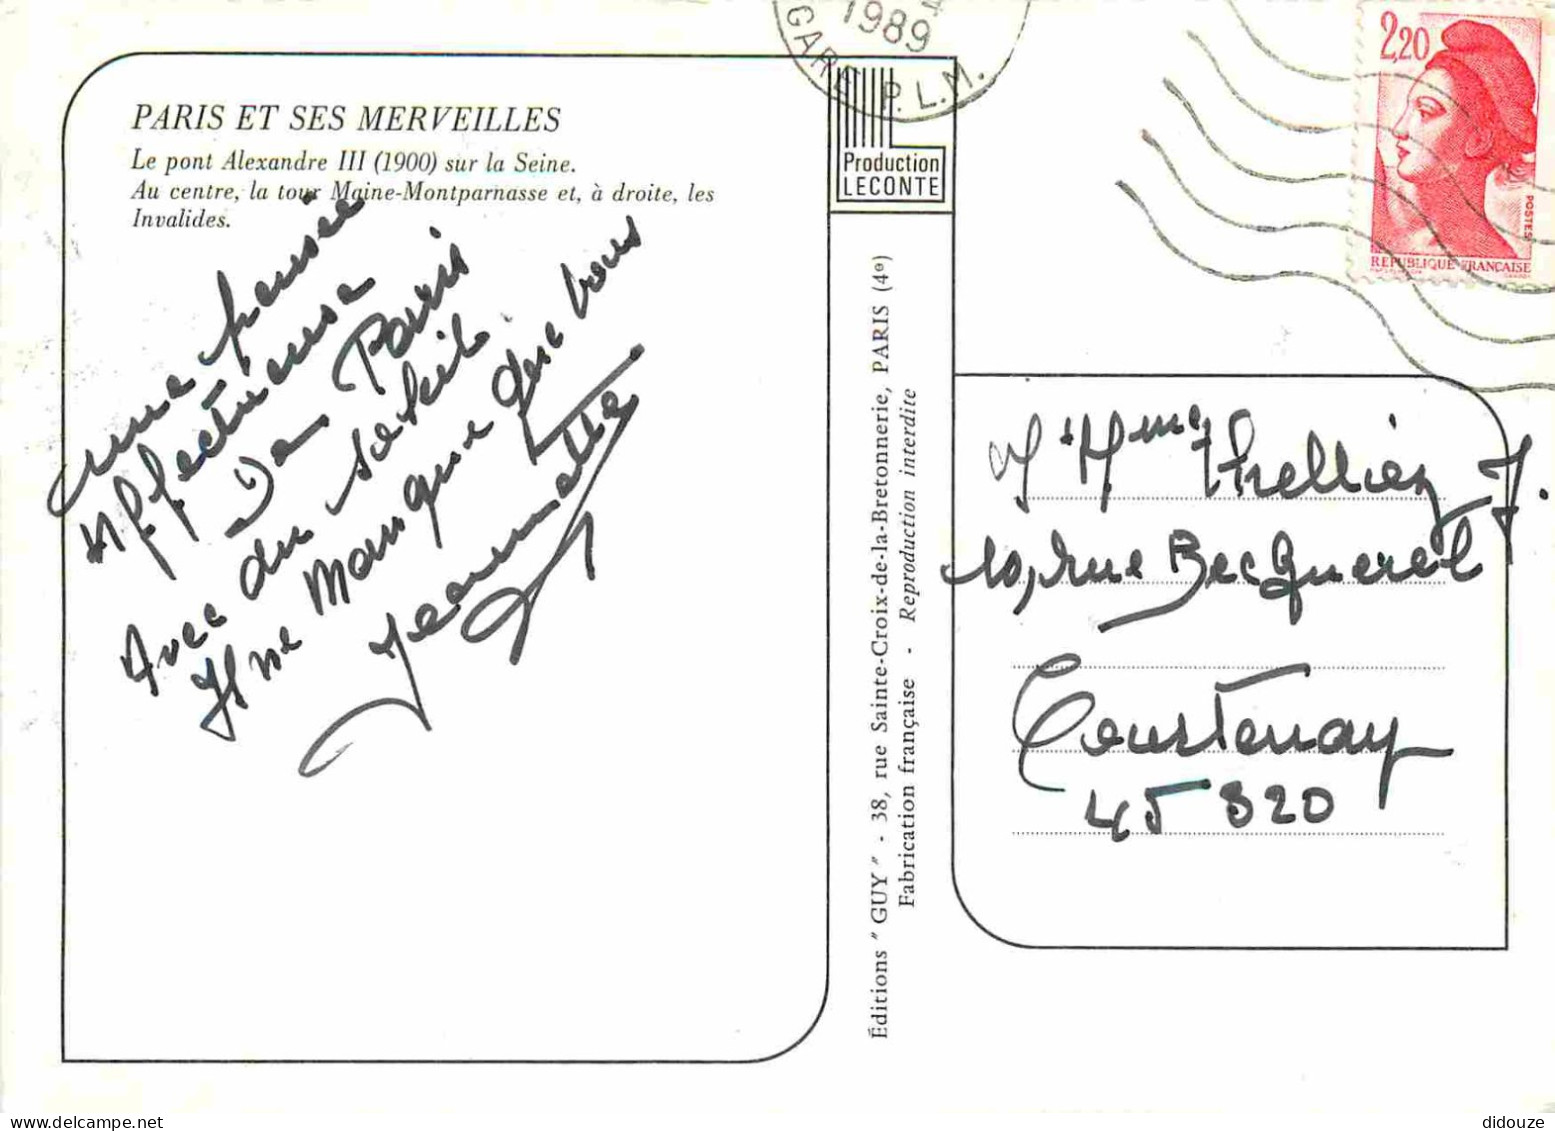 PARIS ET SES MERVEILLES
Le pont Alexandre III (1900) sur la Seine.
Au centre, la tour Maine-Montparnasse et, à droite, les
Invalides.
une pensée
Affectueuse
De Paris
Avec du soleil
Il ne manque que vous
Jeannette
Production
LECONTE
Éditions "GUY" - 38, rue Sainte-Croix-de-la-Bretonnerie, PARIS (4e)
Fabrication française - Reproduction interdite
1989
GARE P.L.M.
2,20
POSTES
REPUBLIQUE FRANÇAISE
M Mme Thelliez J.
10, rue Becquerel
Courtenay
45 320
didouze